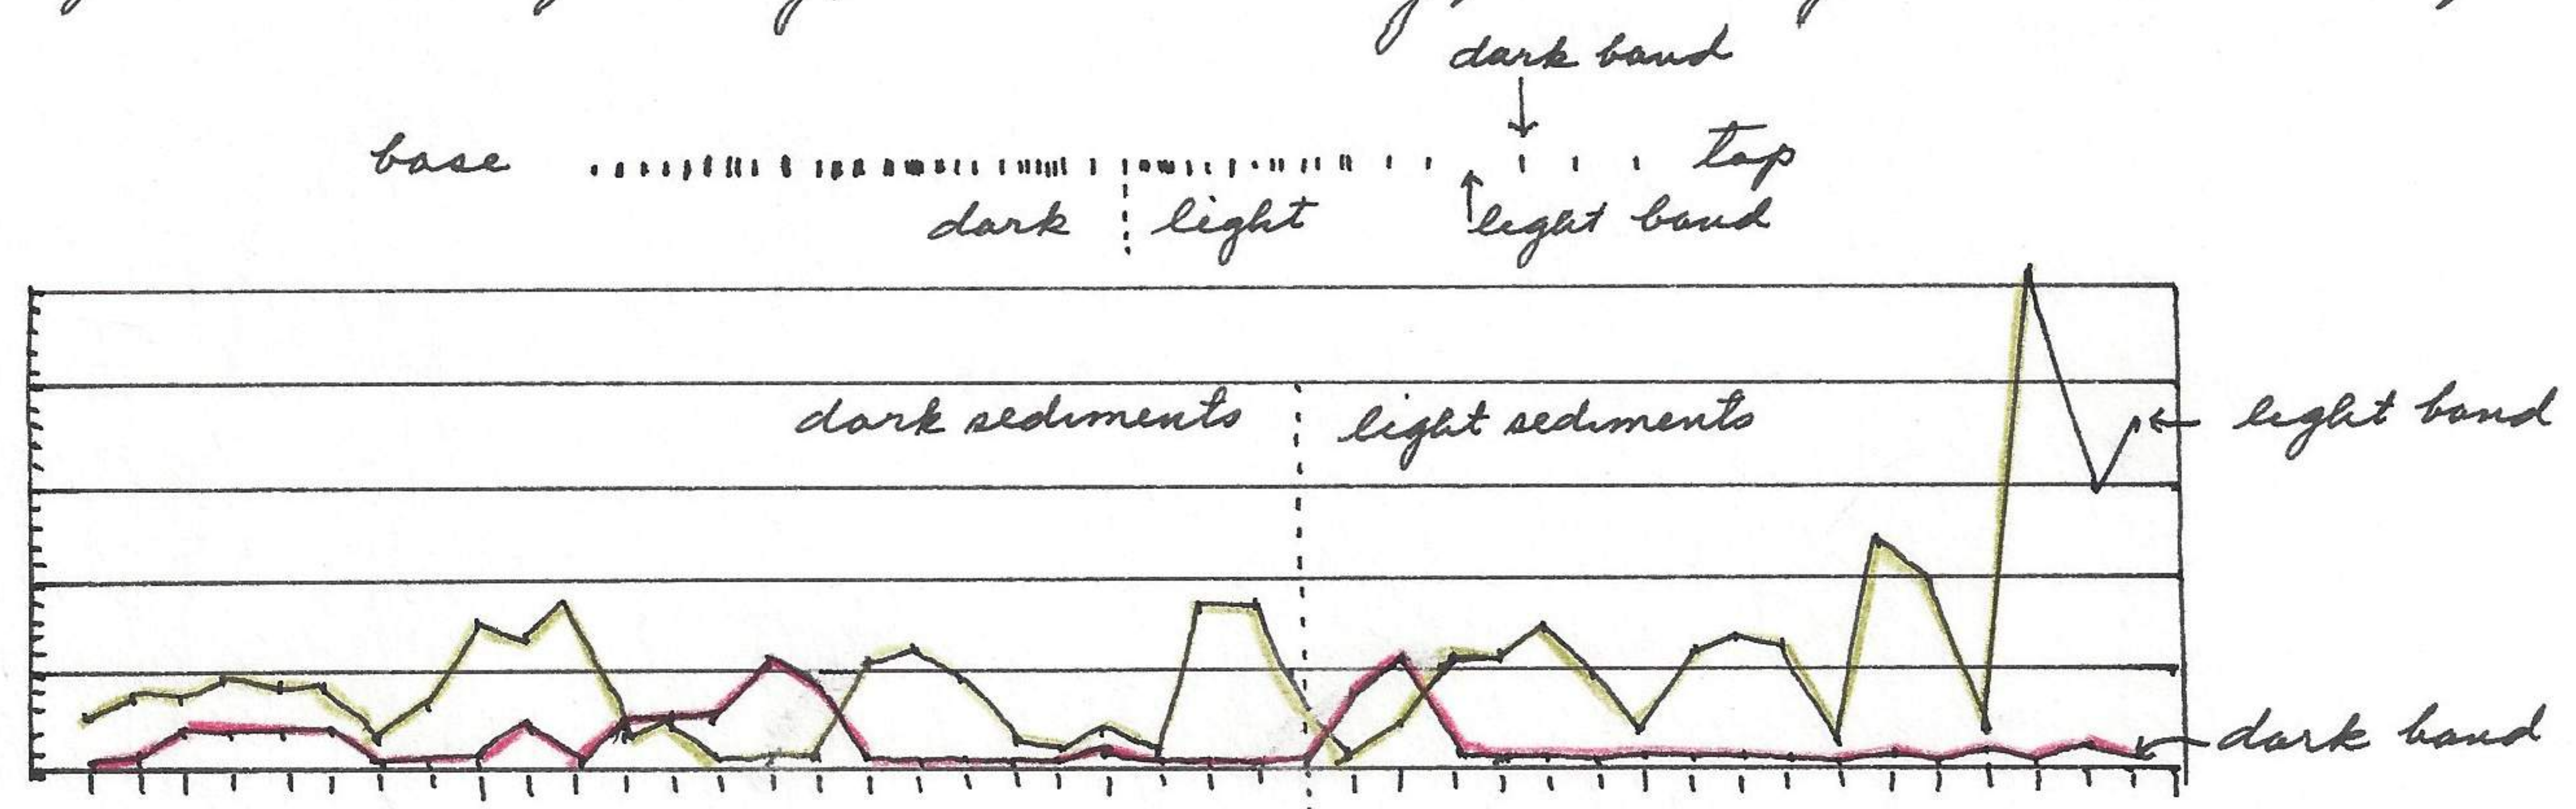 dark band
base top
dark light light band
dark sediments light sediments
light band
dark band